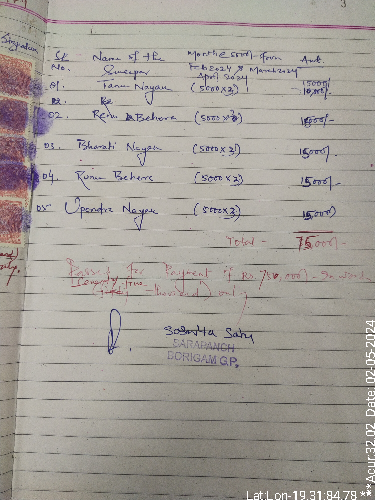 Signature
Sl. No.
Name of the Sweeper
Month @ 5000/- from Feb 2024 & March 2024 April 2024
Amt.
01. Tanu Nayau (5000×3) 15000/-
02. Renu Behera (5000×3) 15000/-
03. Bharati Nayau (5000×3) 15000/-
04. Runu Behera (5000×3) 15000/-
05 Upendra Nayau (5000×3) 15000)
Total - 75,000/-
Passed for Payment of Rs. 75,000/- In words
(Seventy five thousand) only
Sasmita Sahu
SARAPANCH
DORIGAM G.P.
Lat:Lon-19.31:84.78 ***Acur:32.02 Date:02-05-2024